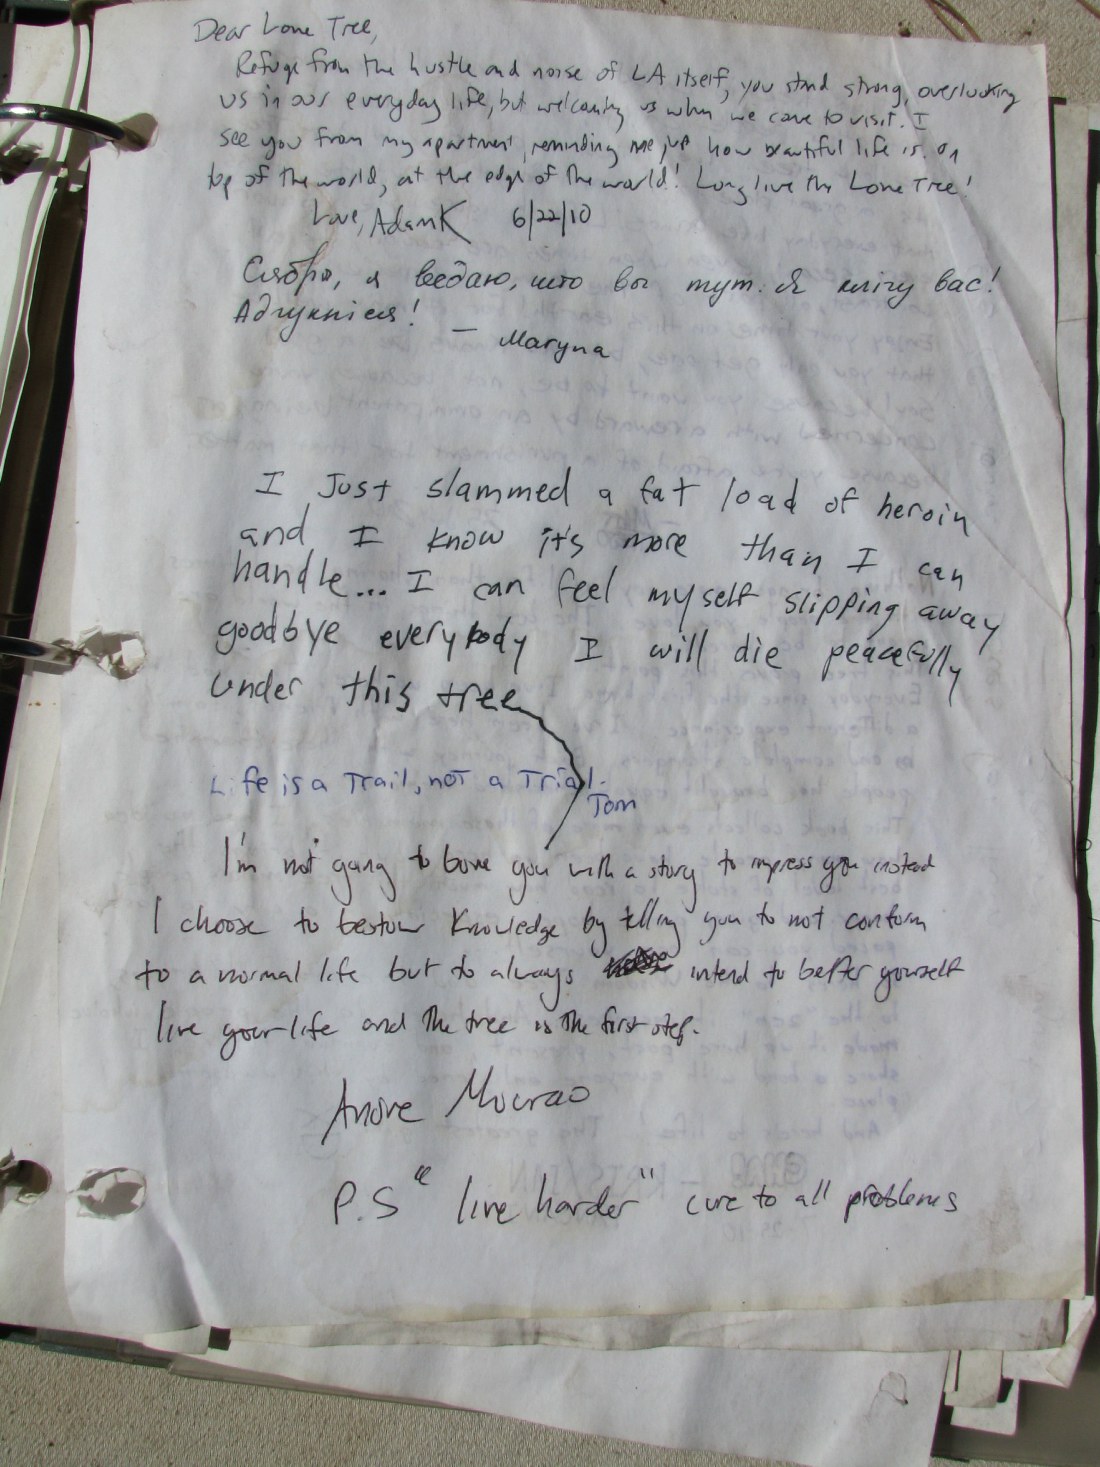 Dear Lone Tree,
Refuge from the hustle and noise of LA itself, you stand strong, overlucking
us in our everyday life, but welcoming us when we come to visit. I
see you from my apartment, reminding me just how beautiful life is. on
top of the world, at the edge of the world! Long live the Lone Tree!
Love, AdamK 6/22/10
Сябры, я ведаю, што вы тут. Я клічу вас!
Адгукніся!
— Maryna
I Just slammed a fat load of heroin
and I know it's more than I can
handle... I can feel myself slipping away
goodbye everybody I will die peacefully
under this tree
Life is a Trail, not a Trial.
Tom
I'm not going to bore you with a story to impress you instead
I choose to bestow Knowledge by telling you to not conform
to a normal life but to always intend to better yourself
live your life and the tree is the first step.
Andre Mourao
P.S "live harder" cure to all problems